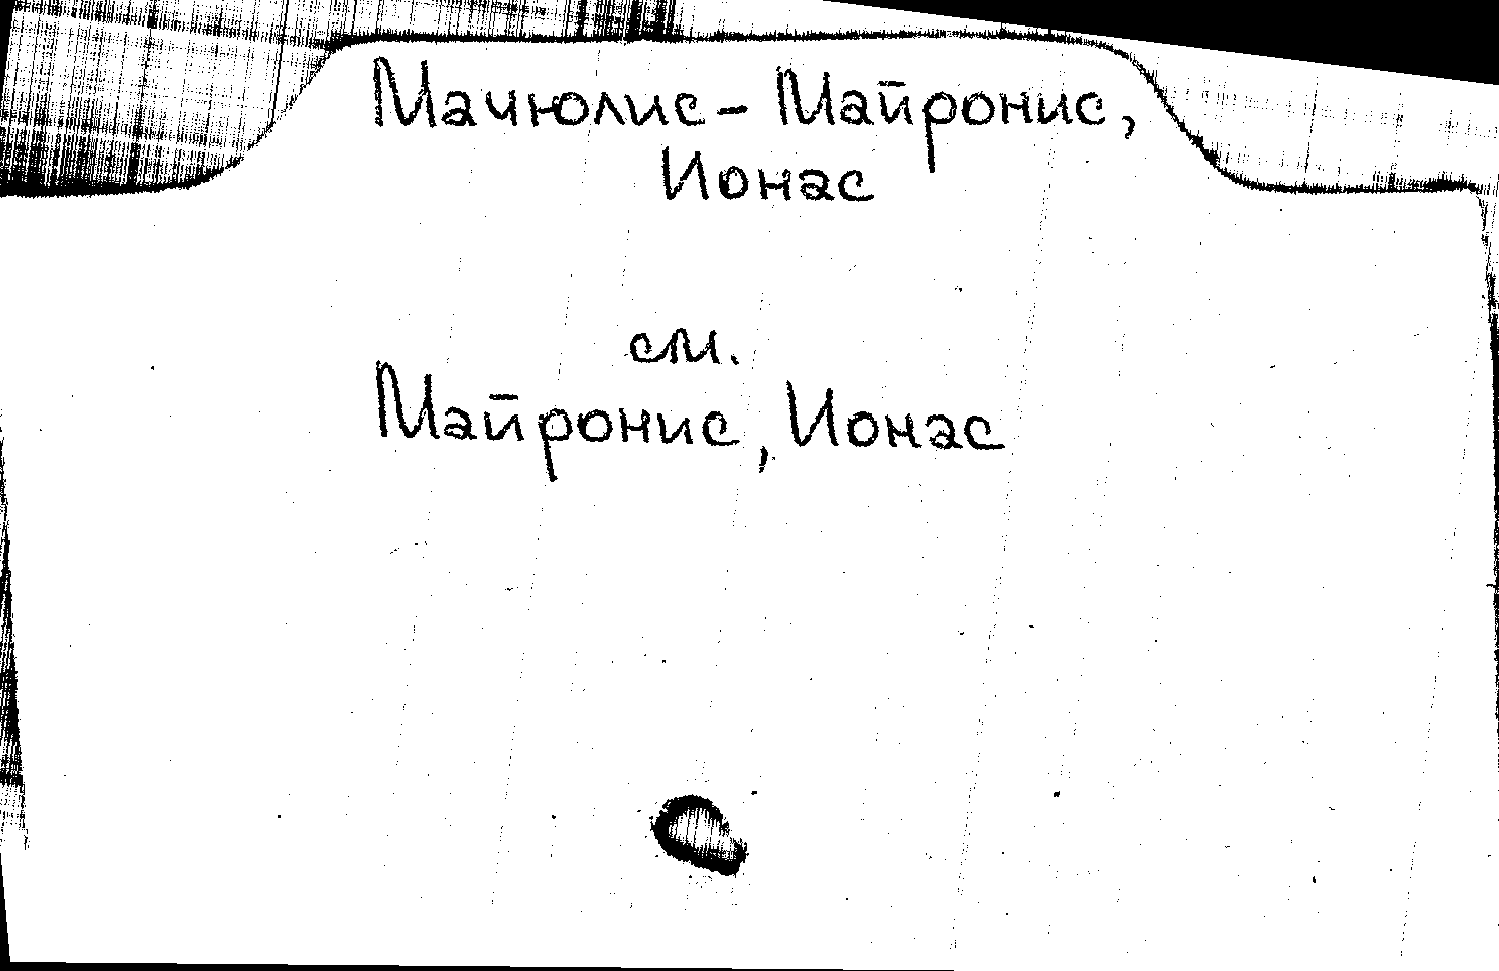 Мачюлис - Майронис,
Ионас
см.
Майронис, Ионас